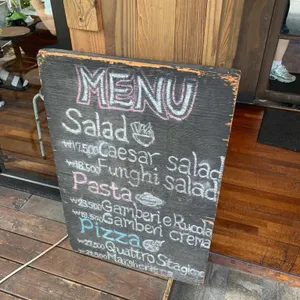 MENU
Salad
₩17,500 Caesar salad
₩18,500 Funghi salad
Pasta
₩23,500 Gamberi e Rucola
Gamberi crema
Pizza
₩27,500 Quattro Stagioni
Margherita